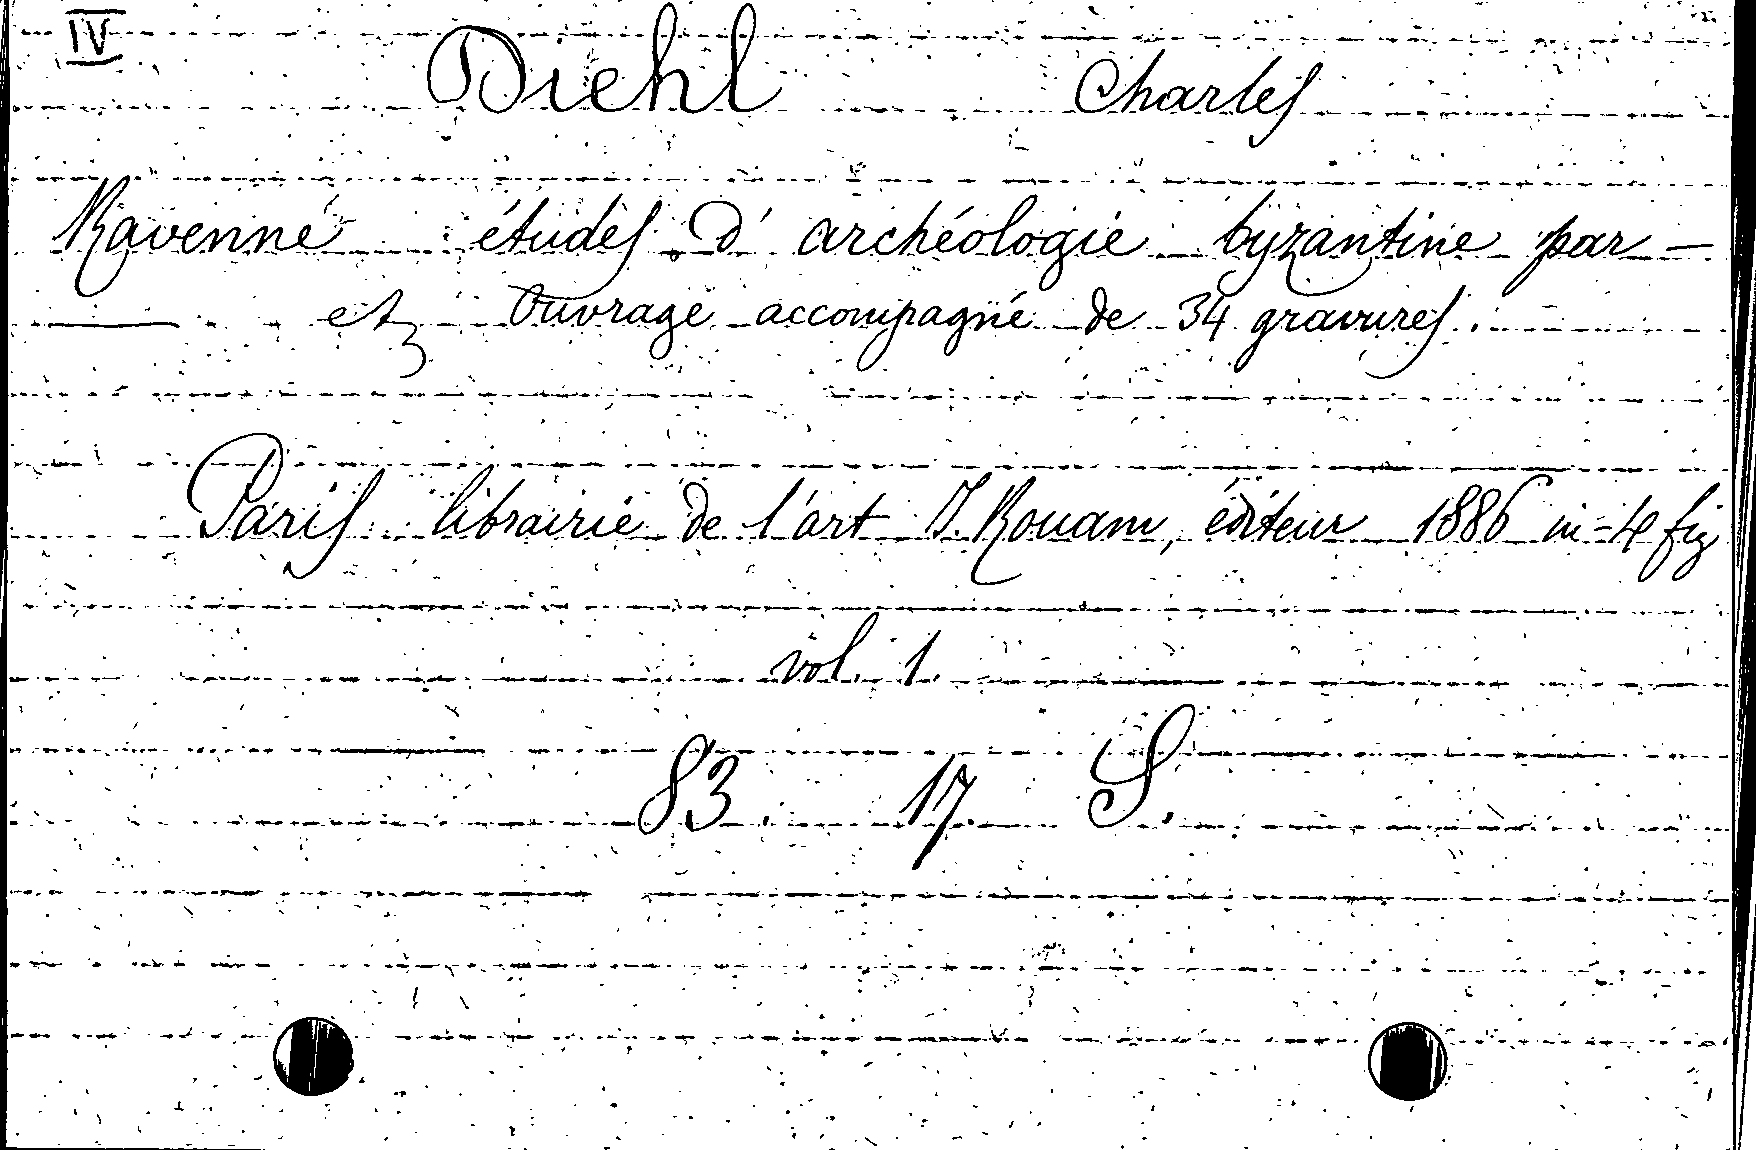 IV
Diehl Charles
Ravenne études d'archéologie byzantine par —
— etz Ouvrage accompagné de 34 gravures.
Paris librairie de l'art J. Rouam, éditeur 1886 in-4 fig
vol. 1.
83. 17. S.